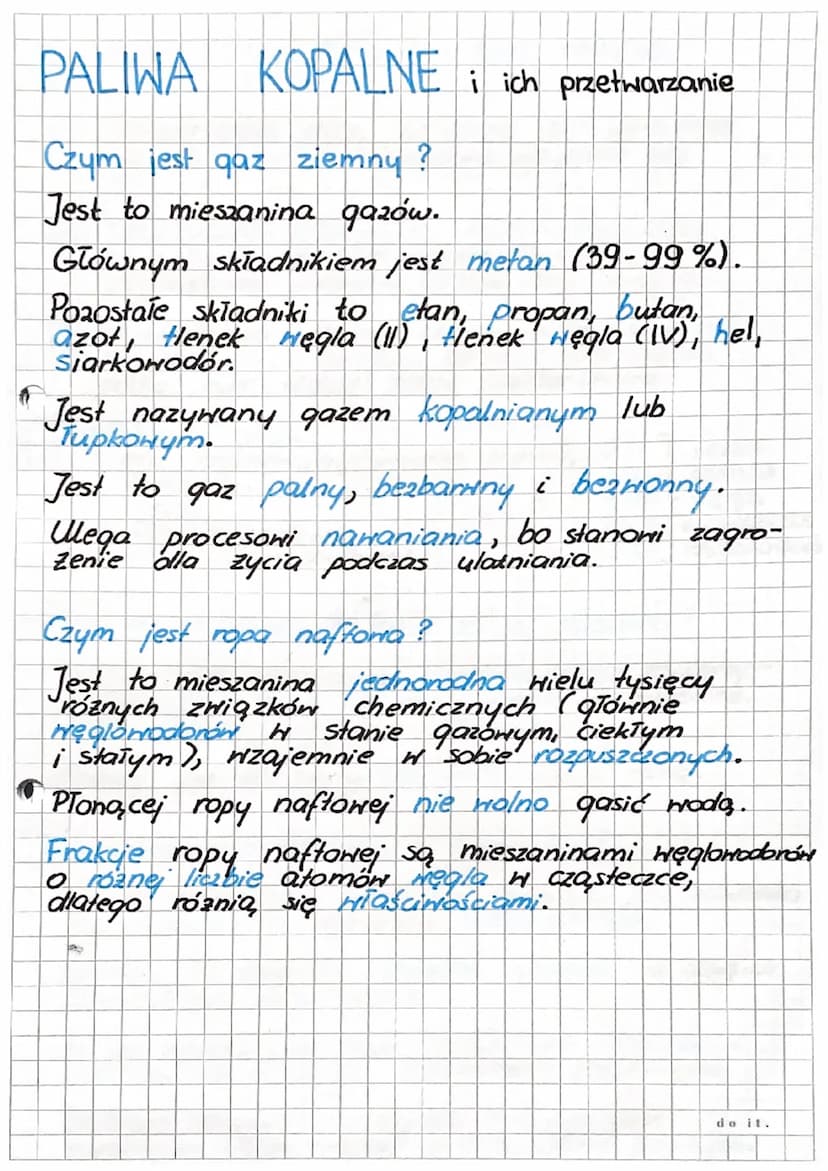 PALIWA KOPALNE i ich przetwarzanie
Czym jest gaz ziemny?
Jest to mieszanina gazów.
Głównym składnikiem jest metan (39-99%).
Pozostałe składniki to etan, propan, butan,
azot, tlenek węgla (II), tlenek węgla (IV), hel,
siarkowodór.
Jest nazywany gazem kopalnianym lub
łupkowym.
Jest to gaz palny, bezbarwny i bezwonny.
Ulega procesowi nawaniania, bo stanowi zagro-
żenie dla życia podczas ulatniania.
Czym jest ropa naftowa?
Jest to mieszanina jednorodna wielu tysięcy
różnych związków chemicznych (głównie
węglowodorów w stanie gazowym, ciekłym
i stałym), wzajemnie w sobie rozpuszczonych.
Płonącej ropy naftowej nie wolno gasić wodą.
Frakcje ropy naftowej są mieszaninami węglowodorów
o różnej liczbie atomów węgla w cząsteczce,
dlatego różnią się właściwościami.
do it.